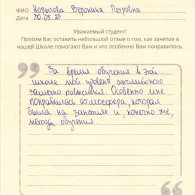 ФИО Ковылова Вероника Петровна
Дата 20.05.23
Уважаемый студент!
Просим Вас оставить небольшой отзыв о том, как занятия в
нашей Школе помогают Вам и что особенно Вам понравилось.
За время обучения в этой
школе мой уровень английского
заметно повысился. Особенно мне
понравилась атмосфера, которая
была на занятиях и конечно же,
методы обучения.